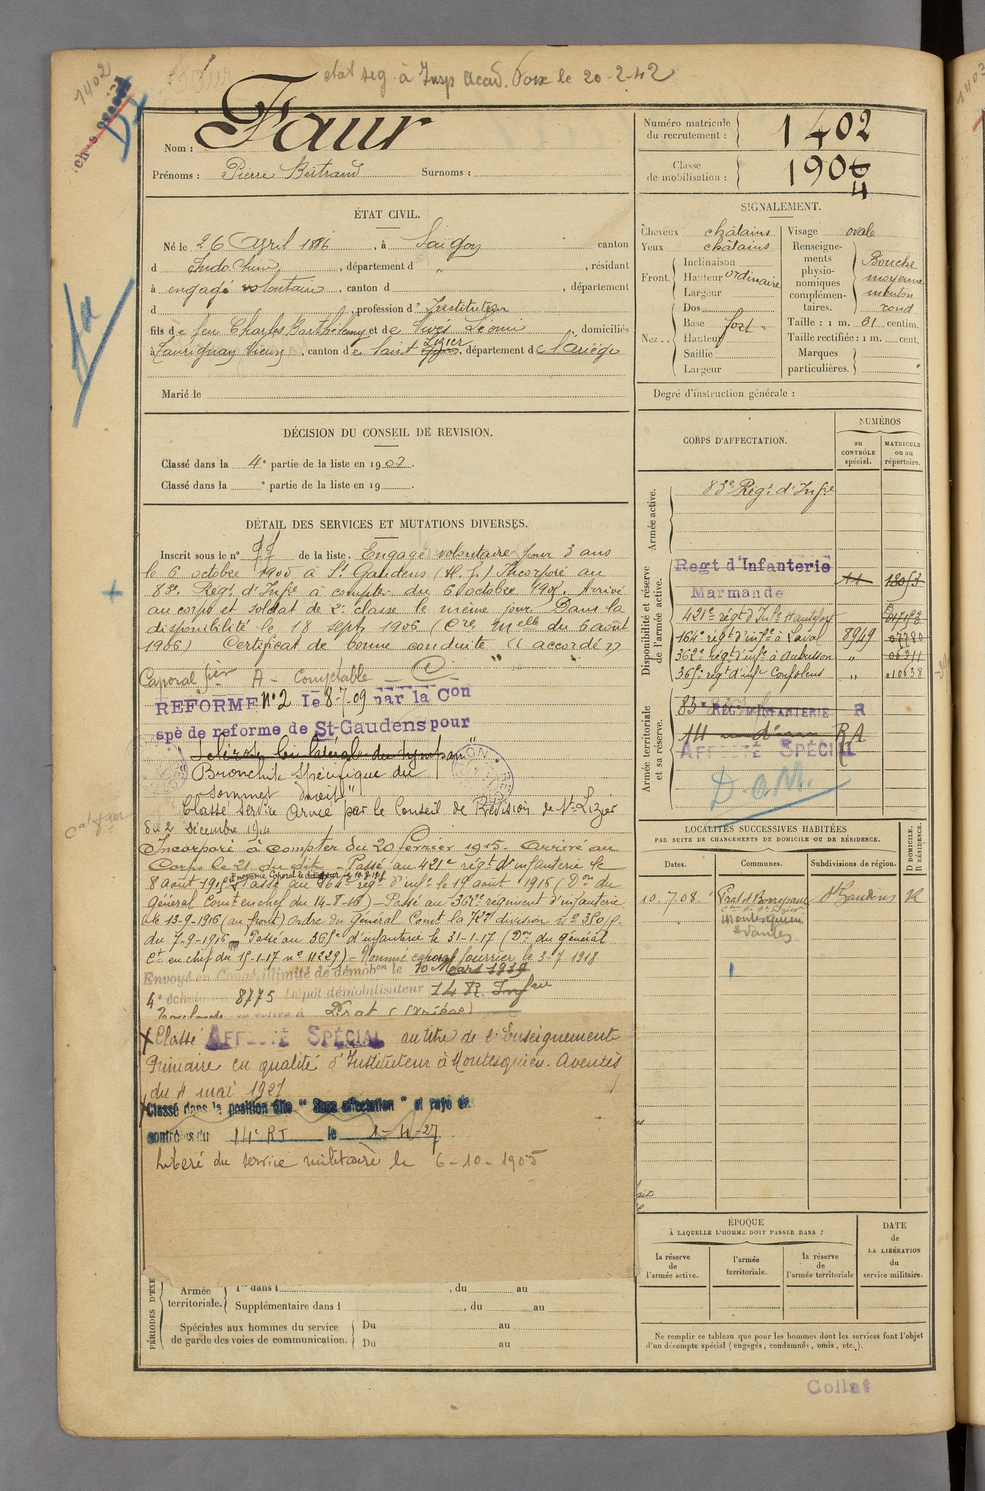 1402
etat seg. à Insp Acad. Foix le 20-2-42
Nom : Faur
Prénoms : Pierre Bertrand Surnoms :
ÉTAT CIVIL.
Né le 26 Avril 1886, à Saïgon canton
d Indo Chine, département d „, résidant
à engagé volontaire, canton d , département
d , profession d' Instituteur
fils de feu Charles Barthélemy et de Livés Léonie domiciliés
à Taurignan Vieux, canton de Saint Lizier, département de l'Ariège
Marié le
DÉCISION DU CONSEIL DE REVISION.
Classé dans la 4e partie de la liste en 1907.
Classé dans la e partie de la liste en 19 .
DÉTAIL DES SERVICES ET MUTATIONS DIVERSES.
Inscrit sous le n° 99 de la liste. Engagé volontaire pour 3 ans
le 6 octobre 1905 à St Gaudens (H. G.) Incorporé au
83e Régt d'Infie à compter du 6 octobre 1905. Arrivé
au corps et soldat de 2e classe le même jour. Dans la
disponibilité le 18 sept 1906 (Cre Melle du 6 août
1906) Certificat de bonne conduite "accordé"
Caporal A - Comptable -
REFORME n° 2 le 8-7-09 par la Con
spé de reforme de St-Gaudens pour
Bronchite Spécifique du
sommet droit"
Classé service armé par le Conseil de Révision de St Lizier
du 2 décembre 1914
Incorporé à compter du 20 février 1915. Arrivé au
Corps le 21 du dit - Passé au 421e régt d'infanterie le
8 août 1915 Passé au 164e régt d'infie le 19 août 1916 (Don du
Général Comt en chef du 14-8-16) - Passé au 362e régiment d'infanterie
le 13-9-1916 (au front) Ordre du Général Comt la 72e division
du 7-9-1916 Passé au 365e d'infanterie le 31-1-17 (Don du général
Ct en chef du 15-1-17 n° 11229) - Nommé caporal fourrier le 3-7 1918
Envoyé en Congé illimité de démobon le 10 Mars 1919
4e échelon n° 8775 Dépôt démobilisateur 14 R. Infie
se retire à Prat (Ariège)
Classé AFFECTÉ SPÉCIAL au titre de l'Enseignement
Primaire en qualité d'Instituteur à Montesquieu-Aventès
du 4 mai 1927
Classé dans la position dite "Sans affectation" et rayé des
contrôles du 14e RI le 1-4-27
Libéré du service militaire le 6-10-1905
PÉRIODES D'EXE
Armée territoriale. 1re dans l , du au
Supplémentaire dans l , du au
Spéciales aux hommes du service de garde des voies de communication. Du au
Du au
Numéro matricule du recrutement : 1402
Classe de mobilisation : 1904
SIGNALEMENT.
Cheveux châtains
Yeux châtains
Front. Inclinaison
Hauteur ordinaire
Largeur
Nez. Dos
Base fort
Hauteur
Saillie
Largeur
Visage ovale
Renseignements physionomiques complémentaires. Bouche moyenne menton rond
Taille : 1 m. 61 centim.
Taille rectifiée : 1 m. cent.
Marques particulières.
Degré d'instruction générale :
CORPS D'AFFECTATION.
NUMÉROS
au CONTRÔLE spécial.
MATRICULE ou au répertoire.
Armée active.
83e Régt d'Infie
Disponibilité et réserve de l'armée active.
Regt d'Infanterie
Marmande
421e régt d'Infie
164e régt d'infie à Laval 8949 07720
362e régt d'infie à Aubusson " 06311
365e régt d'inf Confolens " 010638
Armée territoriale et sa réserve.
83e RÉGt D'INFANTERIE R
14 RA
AFFECTÉ SPÉCIAL
D.a.M.
LOCALITÉS SUCCESSIVES HABITÉES
PAR SUITE DE CHANGEMENTS DE DOMICILE OU DE RÉSIDENCE.
Dates. Communes. Subdivisions de région. D DOMICILE. R RÉSIDENCE.
10.7.08 Prat et Bonrepaux St Gaudens R
Montesquieu
Avantès
ÉPOQUE
À LAQUELLE L'HOMME DOIT PASSER DANS :
la réserve de l'armée active.
l'armée territoriale.
la réserve de l'armée territoriale
DATE de LA LIBÉRATION du service militaire.
Ne remplir ce tableau que pour les hommes dont les services font l'objet
d'un décompte spécial (engagés, condamnés, omis, etc.).
Collat